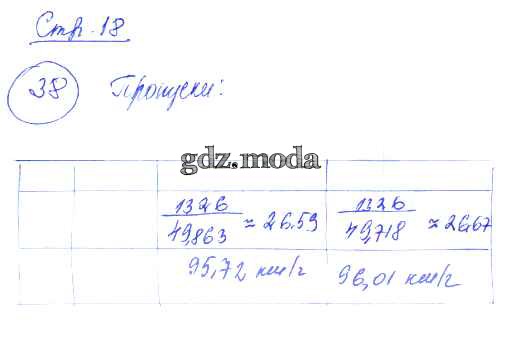 Стр. 18
38 Пропуски:
gdz.moda
1326/49,863 ≈ 26.59 1326/49,718 ≈ 26,67
95,72 км/г 96,01 км/г